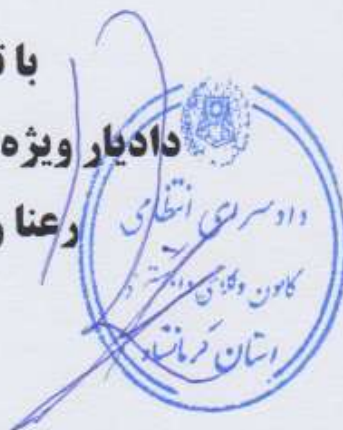 با
دادیار ویژه
رعنا
دادسرای انتظامی
کانون وکلای دادگستری
استان کرمانشاه